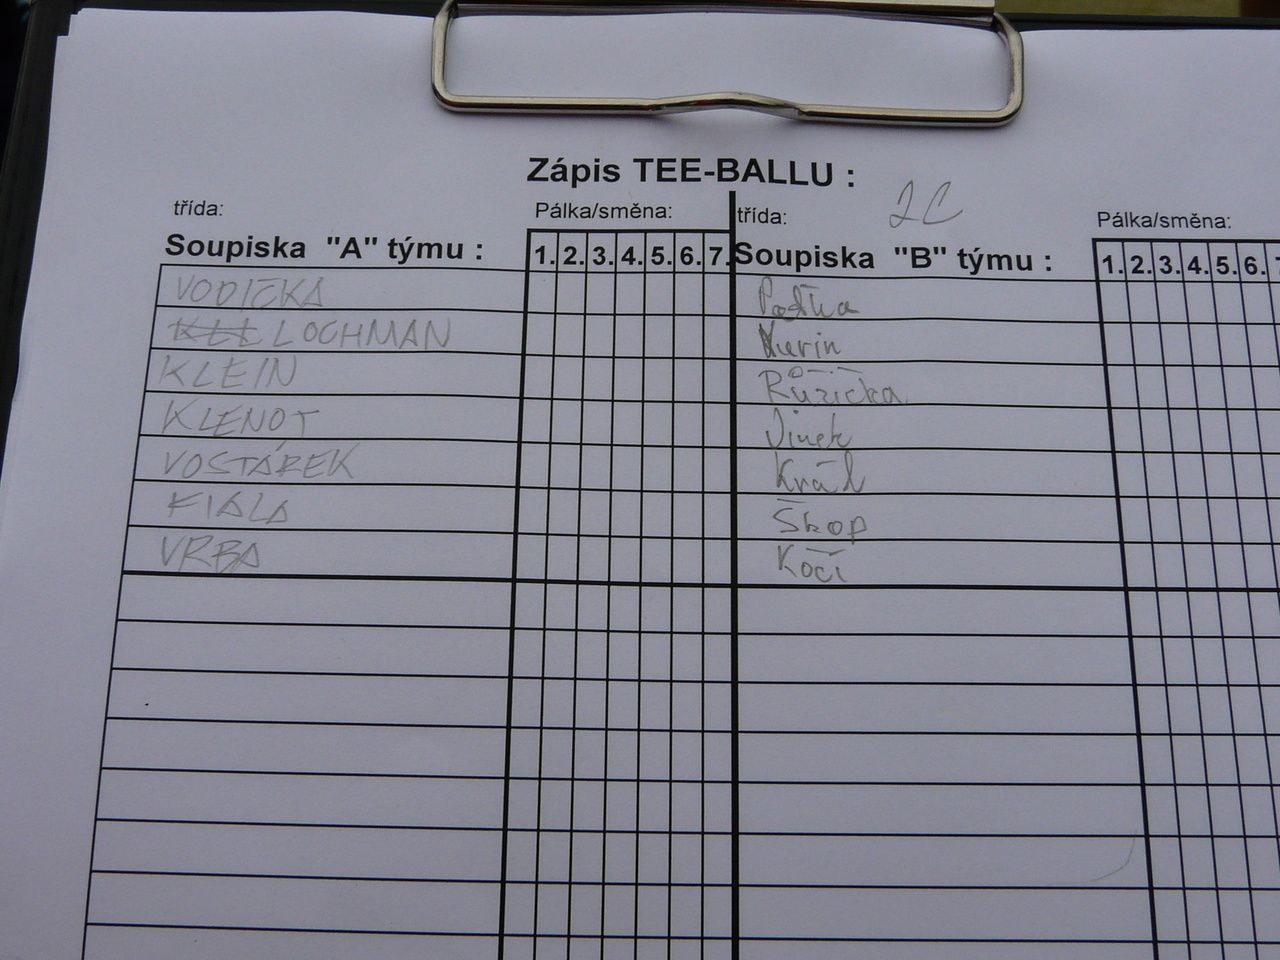 Zápis TEE-BALLU :
třída:
Pálka/směna:
třída: 2C
Pálka/směna:
Soupiska "A" týmu :
1. 2. 3. 4. 5. 6. 7.
Soupiska "B" týmu :
1. 2. 3. 4. 5. 6. 7
VODIČKA
LOCHMAN
KLEIN
KLENOT
VOSTÁREK
FIALA
VRBA
Kurin
Růžička
Jinek
Král
Škop
Kočí